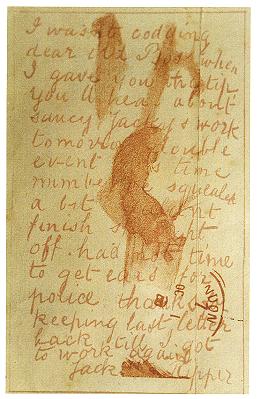 I was not codding
dear old Boss when
I gave you the tip
you'll hear about
saucy Jackys work
tomorrow double
event time
number squealed
a bit
finish
off. had not time
to get ears for
police thanks for
keeping last letter
back till I got
to work again.
Jack Ripper